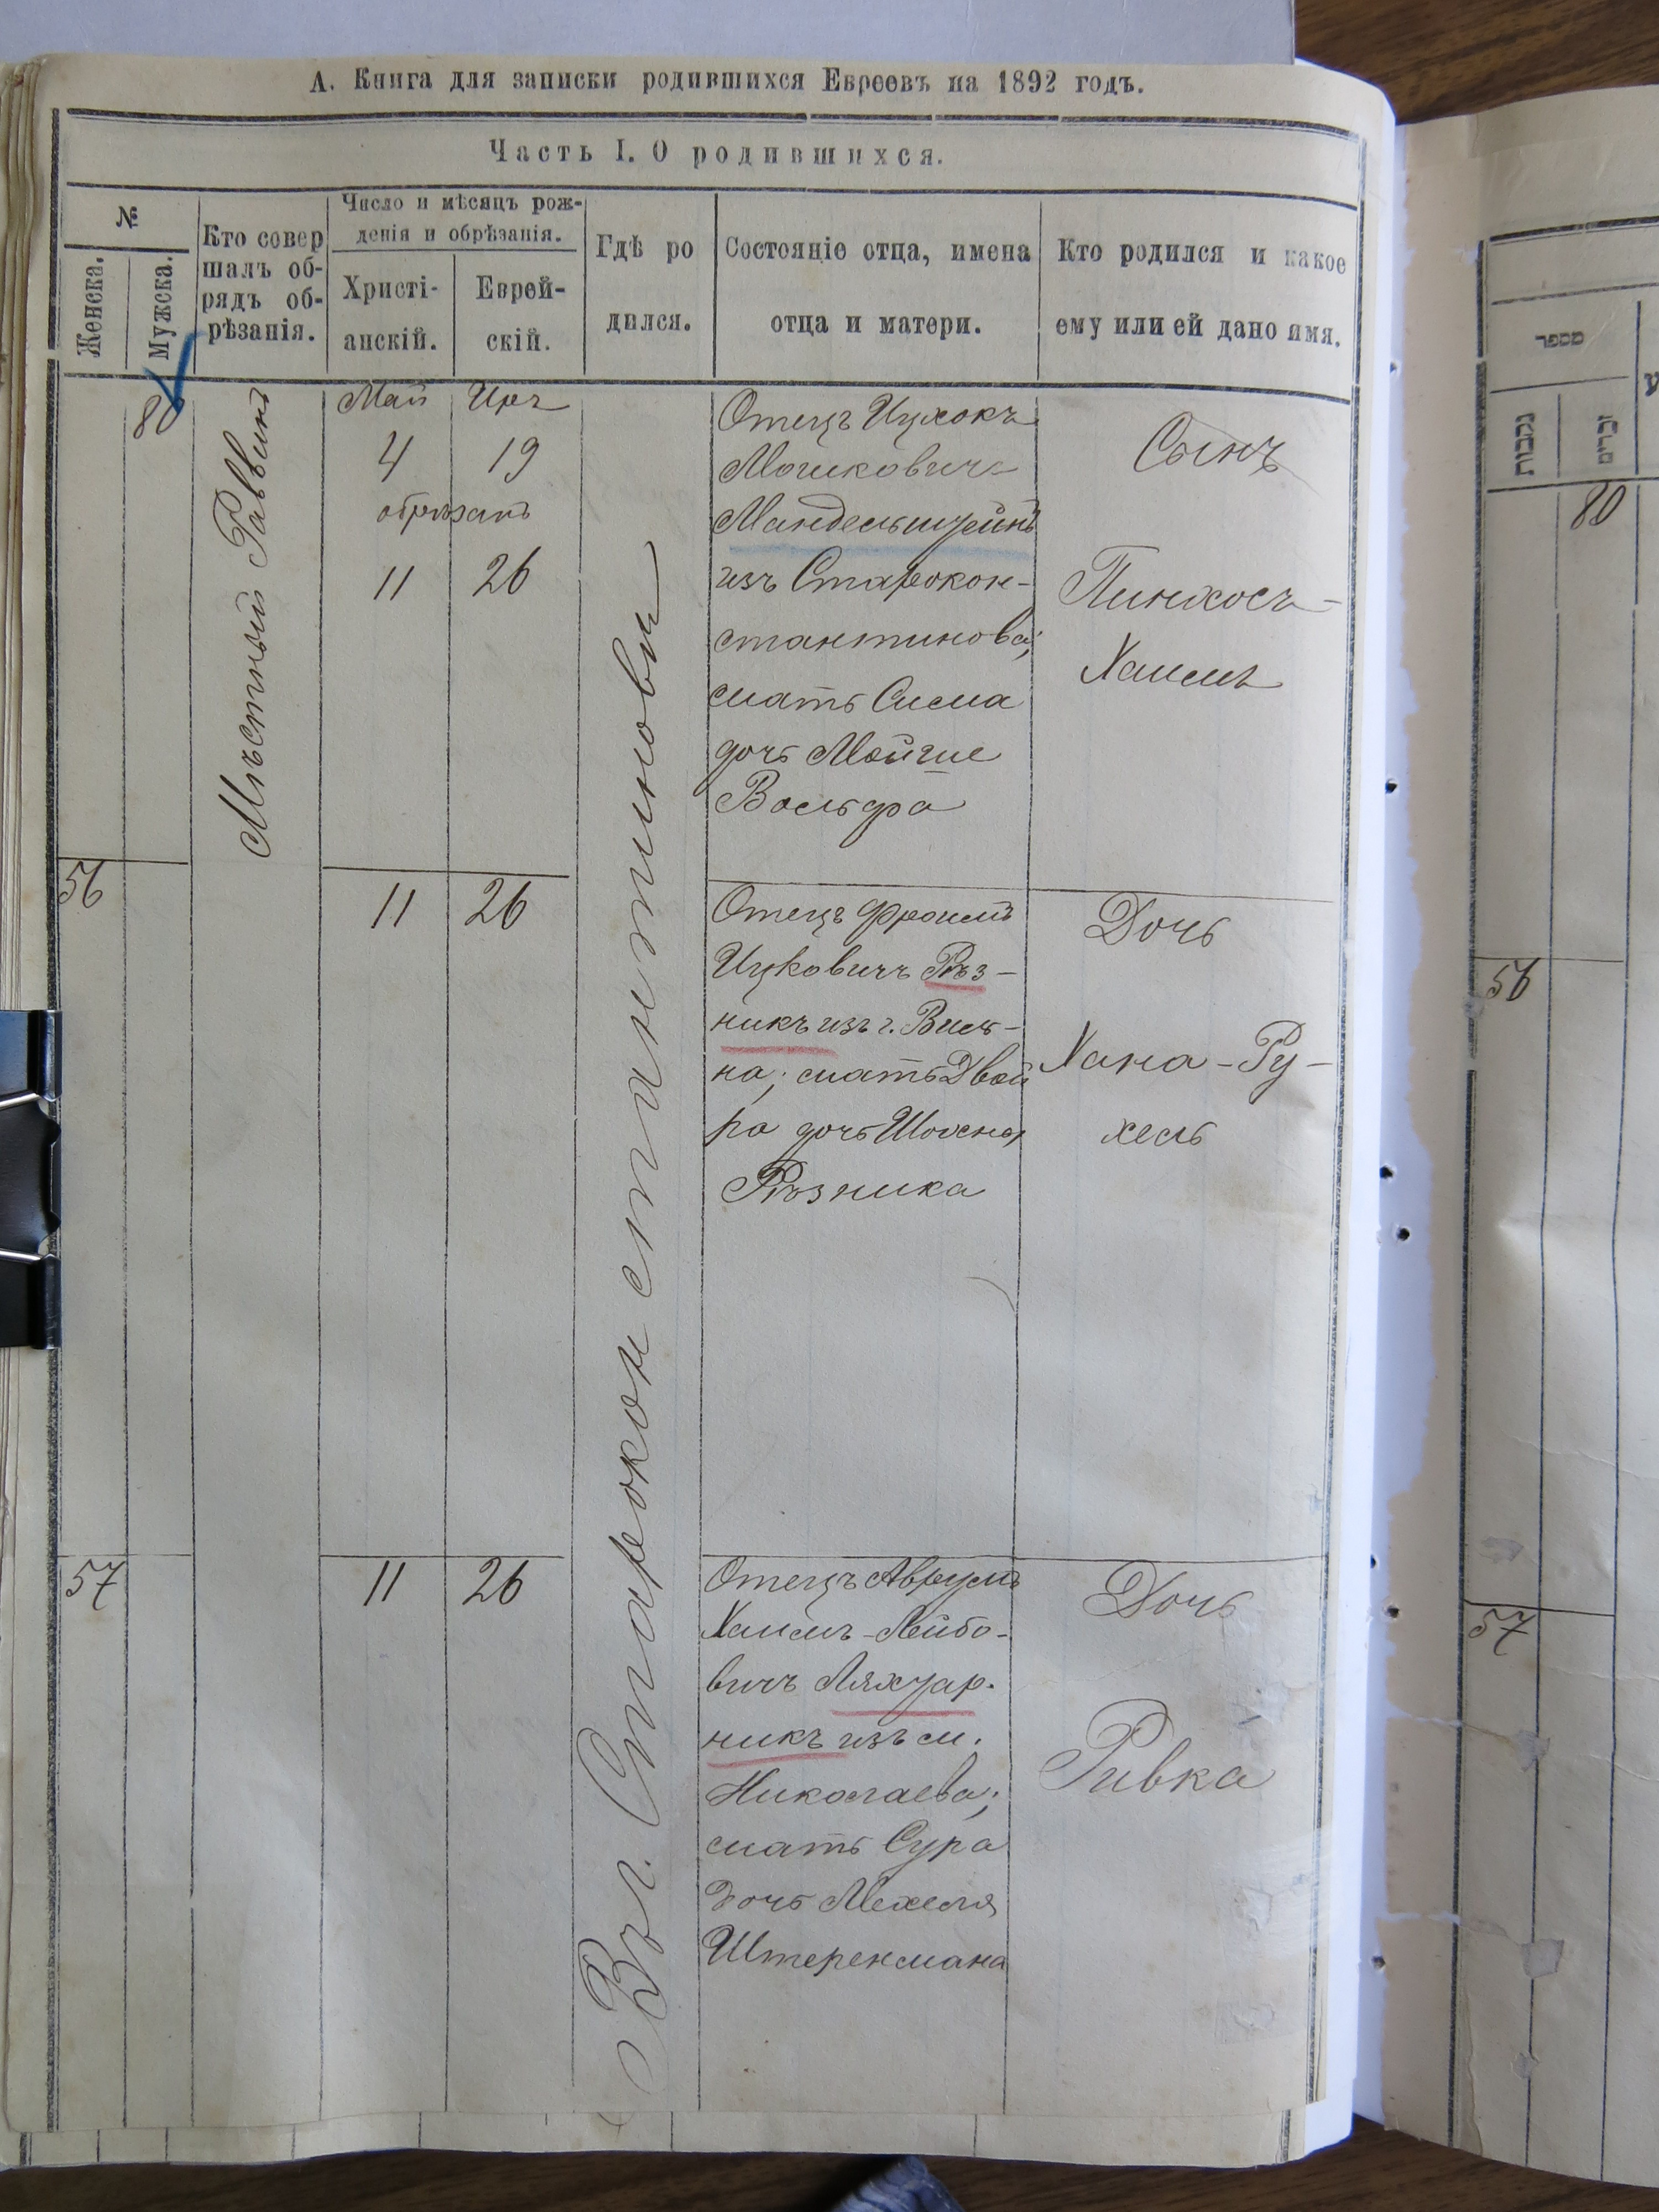 А. Книга для записки родившихся Евреевъ на 1892 годъ.
Часть I. О родившихся.
№
Женска.
Мужска.
Кто совер
шалъ об-
рядъ об-
рѣзанія.
Число и мѣсяцъ рож-
денія и обрѣзанія.
Христі-
анскій.
Еврей-
скій.
Гдѣ ро
дился.
Состояніе отца, имена
отца и матери.
Кто родился и какое
ему или ей дано имя.
80
Мѣстный Раввинъ
Май Иръ
4 19
обрѣзанъ
11 26
Въ г. Староконстантиновѣ
Отецъ Ицхокъ
Мошковичъ
Мандельштейнъ
изъ Старокон-
стантинова;
мать Сима
дочь Мойше
Вольфа
Сынъ
Пинхосъ-
Хаимъ
56
11 26
Отецъ Фроимъ
Ицковичъ Рѣз-
никъ изъ г. Виль-
на; мать Двой
ра дочь
Рѣзника
Дочь
Хана-Ру-
хель
57
11 26
Отецъ Аврумъ
Хаимъ-Лейбо-
вичъ
никъ изъ м.
Николаева;
мать Сура
дочь Мехеля
Штеренмана
Дочь
Ривка
מספר
נקבות
זכרים
80
56
57